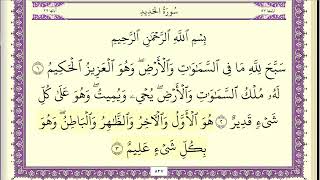 سُورَةُ الحَدِيدِ
بِسْمِ اللَّهِ الرَّحْمَٰنِ الرَّحِيمِ
سَبَّحَ لِلَّهِ مَا فِي السَّمَٰوَٰتِ وَالْأَرْضِ ۖ وَهُوَ الْعَزِيزُ الْحَكِيمُ ١
لَهُۥ مُلْكُ السَّمَٰوَٰتِ وَالْأَرْضِ ۖ يُحْيِۦ وَيُمِيتُ ۖ وَهُوَ عَلَىٰ كُلِّ
شَيْءٍ قَدِيرٌ ٢ هُوَ الْأَوَّلُ وَالْآخِرُ وَالظَّٰهِرُ وَالْبَاطِنُ ۖ وَهُوَ
بِكُلِّ شَيْءٍ عَلِيمٌ ٣
٥٣٧